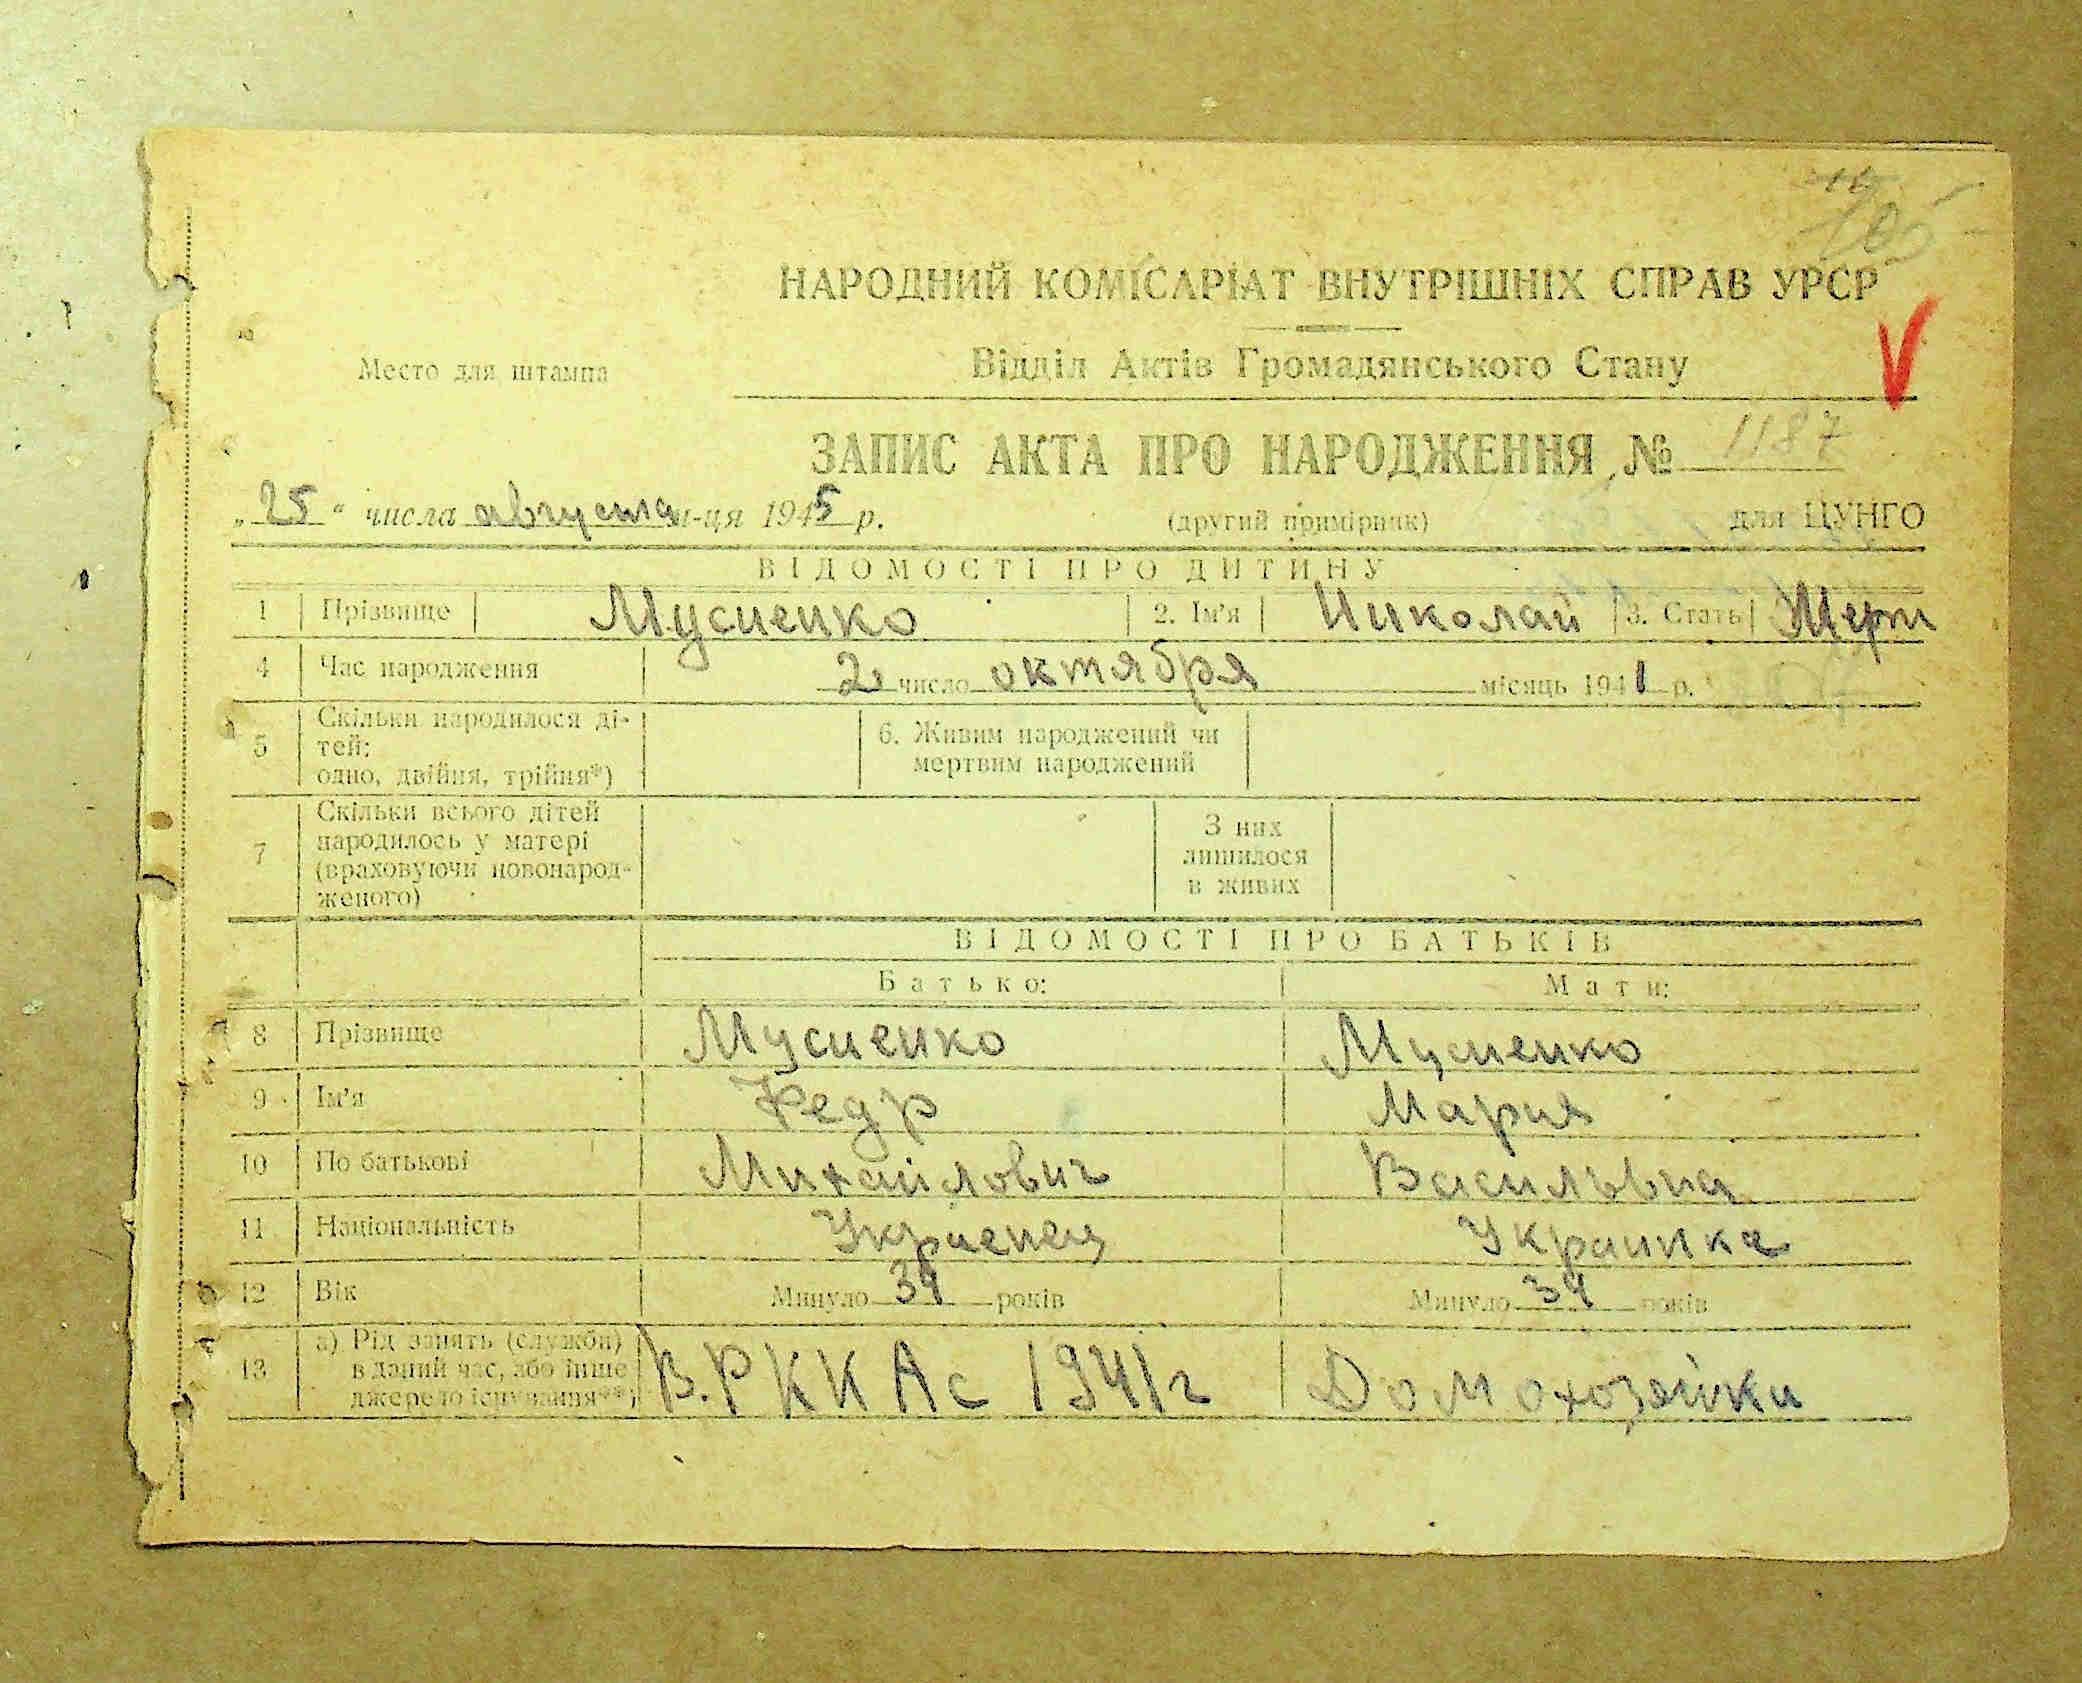 105
НАРОДНИЙ КОМІСАРІАТ ВНУТРІШНІХ СПРАВ УРСР
Место для штампа
Відділ Актів Громадянського Стану
ЗАПИС АКТА ПРО НАРОДЖЕННЯ № 1187
„25“ числа августа м-ця 1945 р. (другий примірник) для ЦУНГО
ВІДОМОСТІ ПРО ДИТИНУ
1 Прізвище Мусиенко 2. Ім'я Николай 3. Стать
4 Час народження 2 число октября місяць 1941 р.
5 Скільки народилося ді-
тей:
одно, двійня, трійня*)
6. Живим народжений чи
мертвим народжений
7 Скільки всього дітей
народилось у матері
(враховуючи новонарод-
женого)
З них
лишилося
в живих
ВІДОМОСТІ ПРО БАТЬКІВ
Батько: Мати:
8 Прізвище Мусиенко Мусиенко
9 Ім'я Федр Мария
10 По батькові Михайлович Васильвна
11 Національність Украенец Украинка
12 Вік Минуло 34 років Минуло 34 років
13 а) Рід занять (служби)
в даний час, або інше
джерело існування**)
В.РККА с 1941 г Домохозяйки